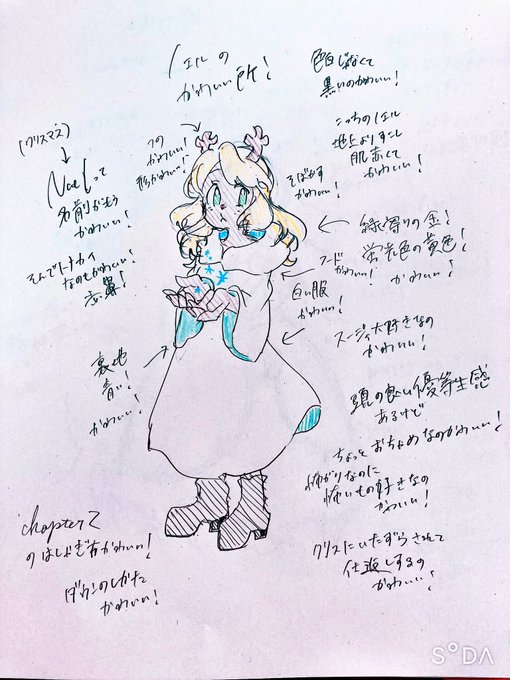 ノエルの
かわいい所!
色白じゃなくて
黒いのかわいい!
(クリスマス)
↓
Noelって
名前がもう
かわいい!
そんでトナカイ
なのもかわいい
赤鼻!
つの
かわいい!
形かわいい!
そばかす
かわいい!
こっちのノエル
地上よりすこし
肌赤くて
かわいい!
緑寄りの金!
蛍光色の黄色!
かわいい!
フード
かわいい!
白い服
かわいい!
スージィ大好きなの
かわいい!
裏地
青い!
かわいい!
頭の良い優等生感
あるけど
ちょっとおちゃめなのかわいい!
怖がりなのに
怖いもの好きなの
かわいい!
chapter2
のはしゃぎ方かわいい!
ダウンのしかた
かわいい!
クリスにいたずらされて
仕返しするの
かわいい!
SODA